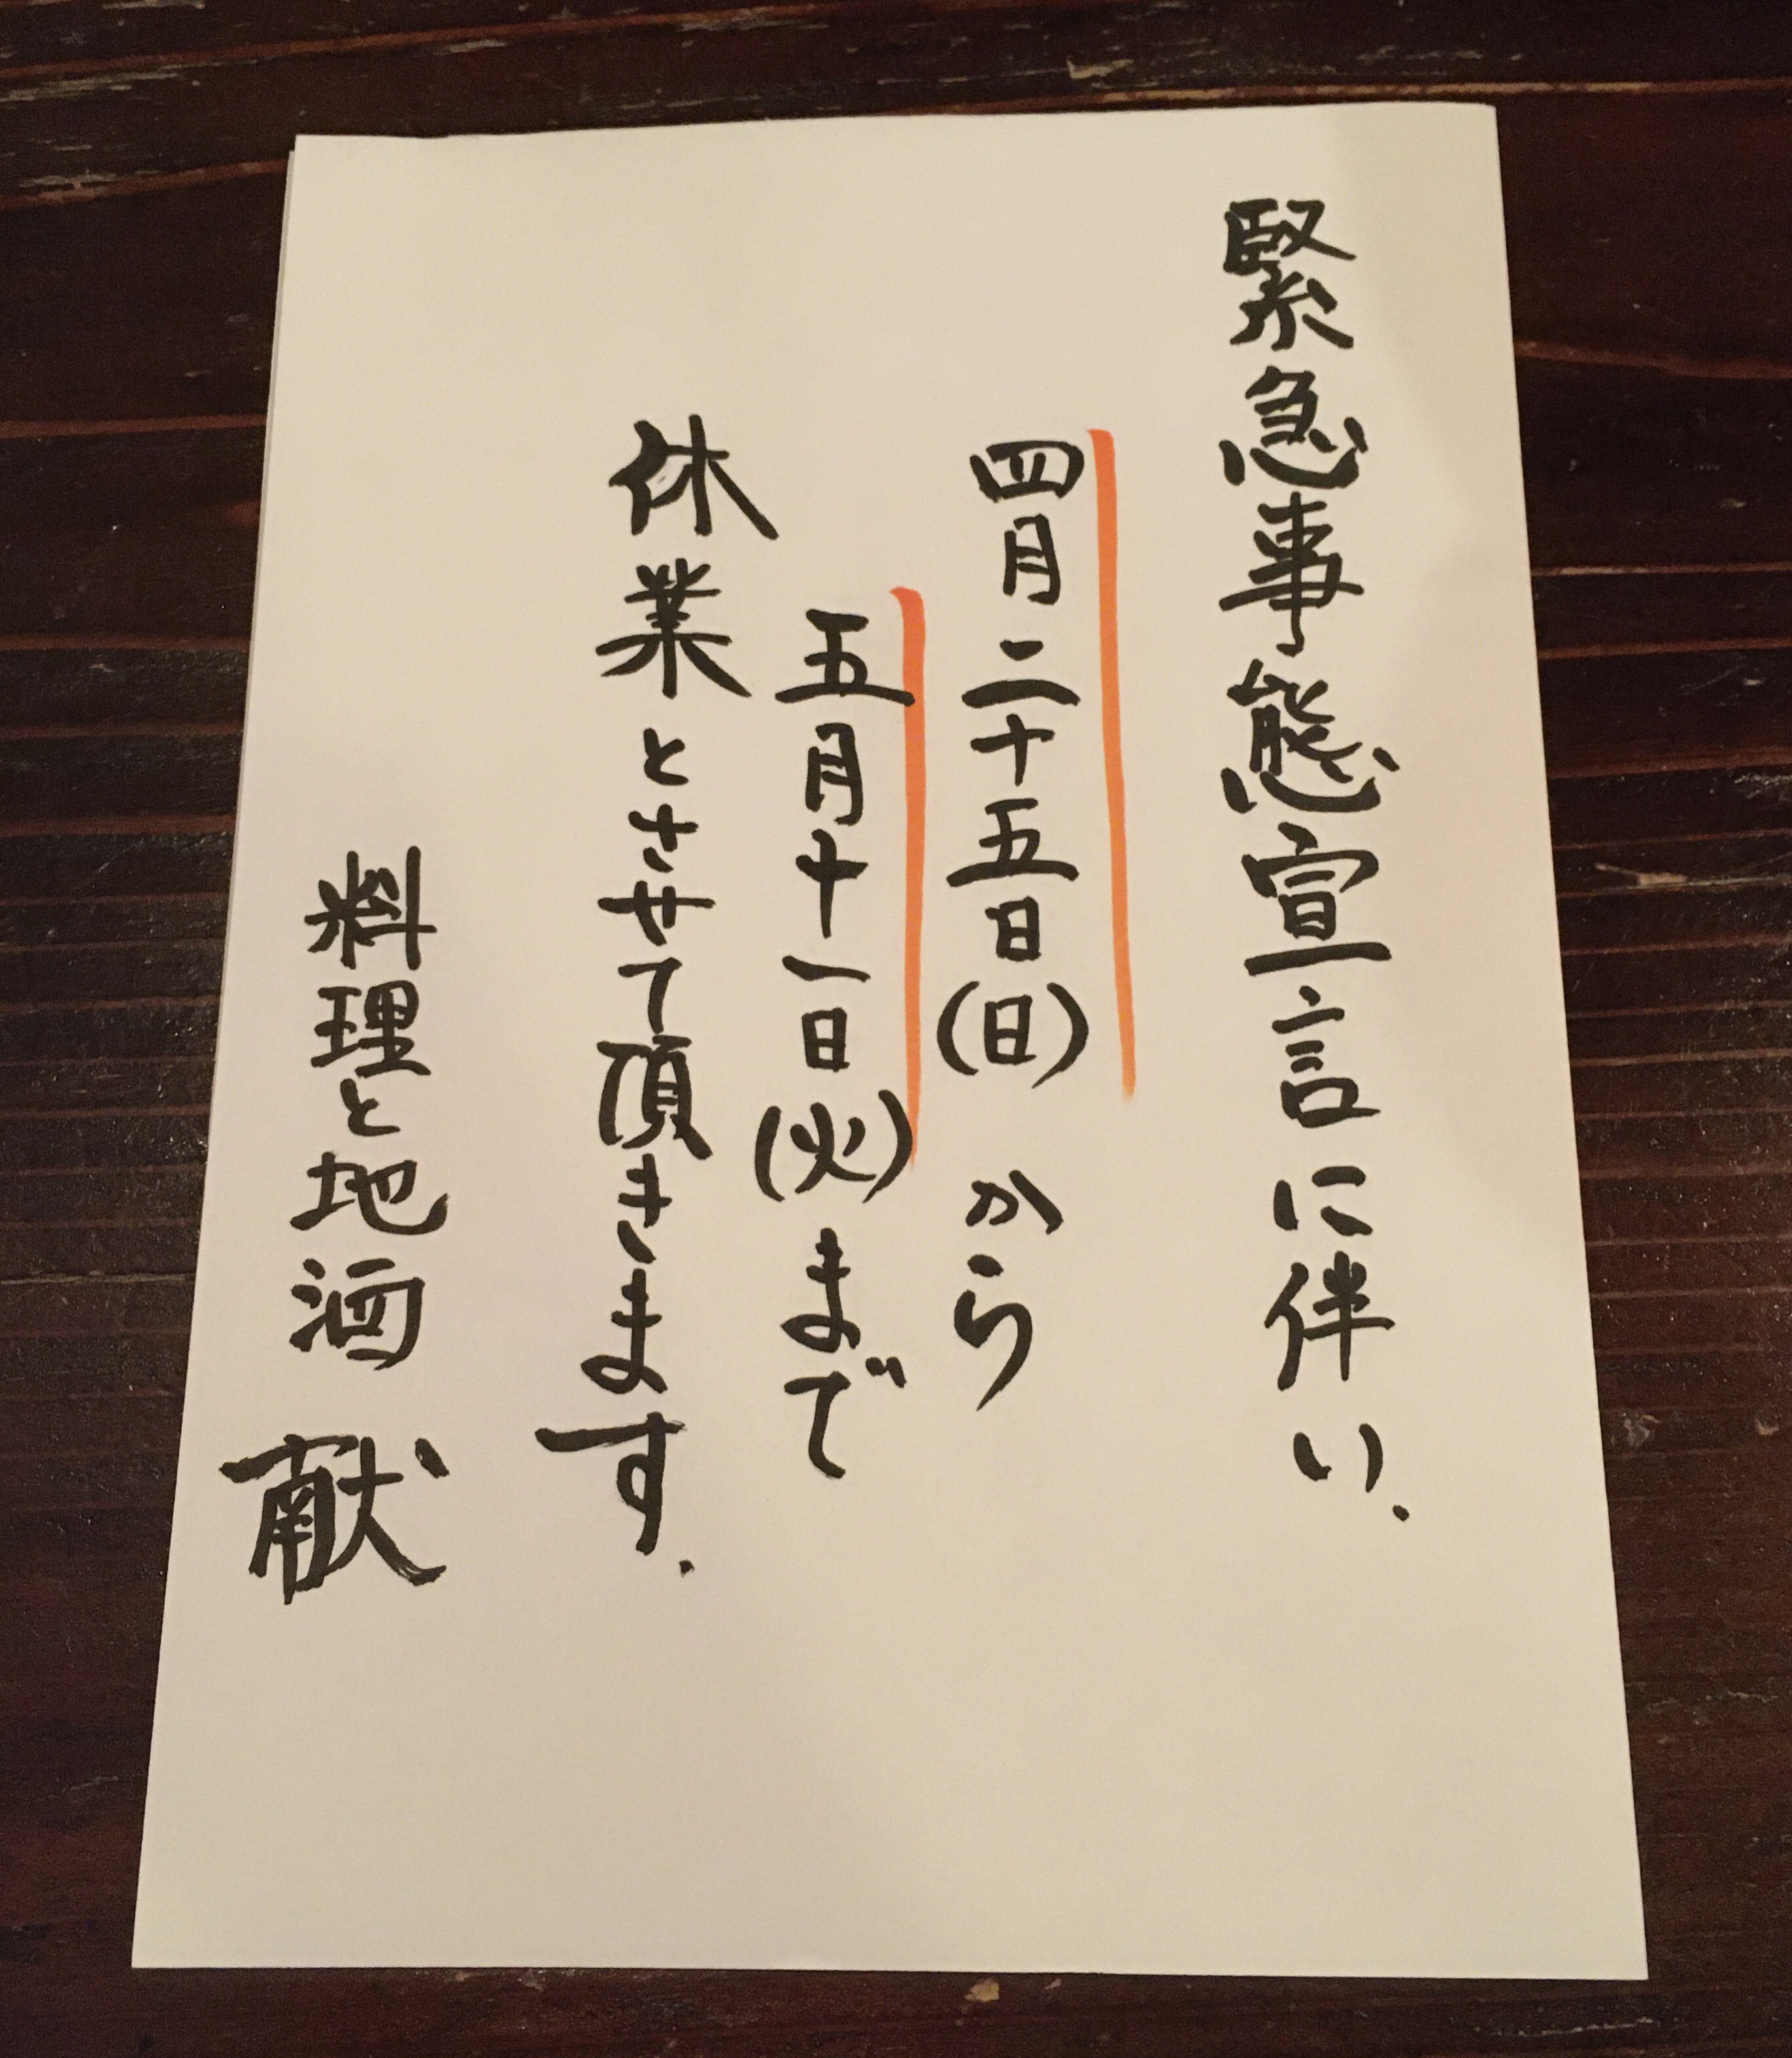 緊急事態宣言に伴い、
四月二十五日(日)から
五月十一日(火)まで
休業とさせて頂きます。
料理と地酒 献